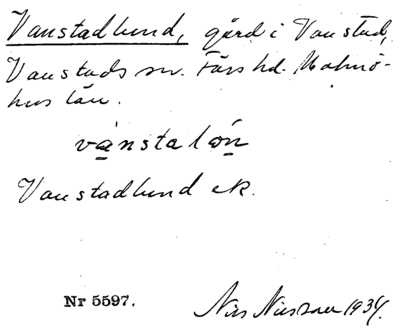 Vanstadlund, gård i Vanstad,
Vanstads sn. Färs hd. Malmö-
hus län.
vanstalón
Vanstadlund ek.
Nr 5597. Nils Nilsson 1934.